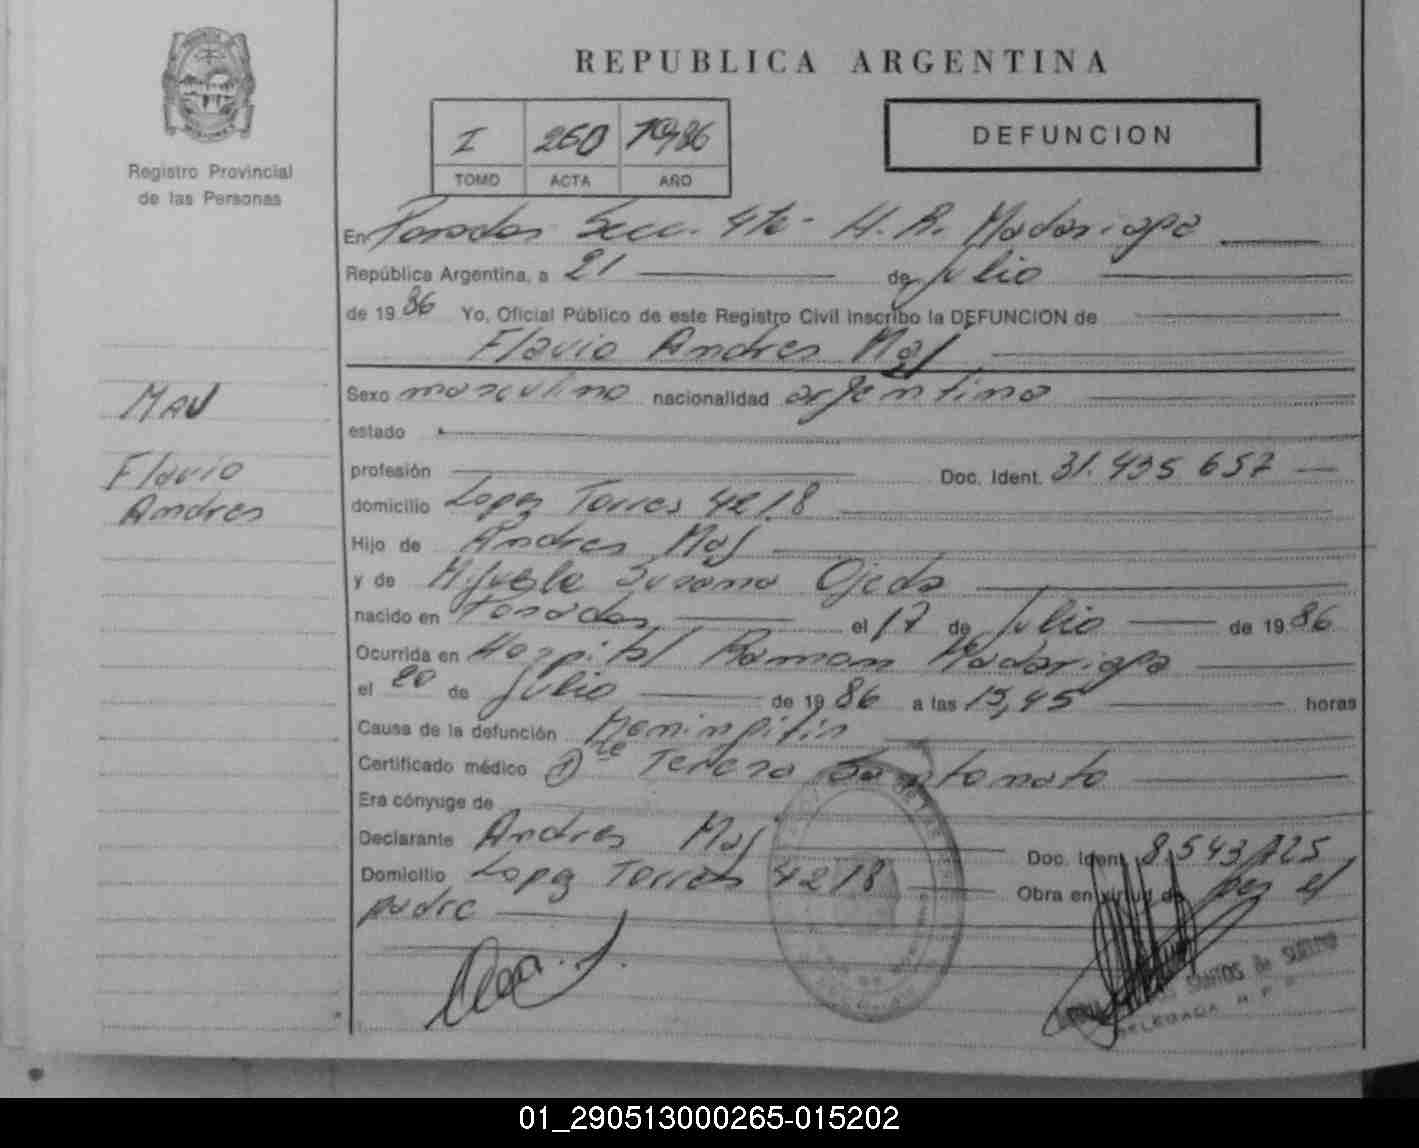 REPUBLICA ARGENTINA
Registro Provincial
de las Personas
I 260 1986
TOMO ACTA AÑO
DEFUNCION
En Posadas Secc. 4ta - H. R. Madariaga
República Argentina, a 21 de Julio
de 1986 Yo, Oficial Público de este Registro Civil inscribo la DEFUNCION de
Flavio Andres
Sexo masculino nacionalidad argentino
estado
profesión Doc. Ident. 31.435 657
domicilio Lopez Torres 4218
Hijo de Andres
y de Miguela Susana Ojeda
nacido en Posadas el 17 de Julio de 1986
Ocurrida en Hospital Ramon Madariaga
el 20 de Julio de 1986 a las 15,45 horas
Causa de la defunción Meningitis
Certificado médico Teresa
Era cónyuge de
Declarante Andres Doc. Ident. 8.543
Domicilio Lopez Torres 4218 Obra en virtud de ser el
padre
Flavio
Andres
SANTOS de
DELEGADA
01_290513000265-015202